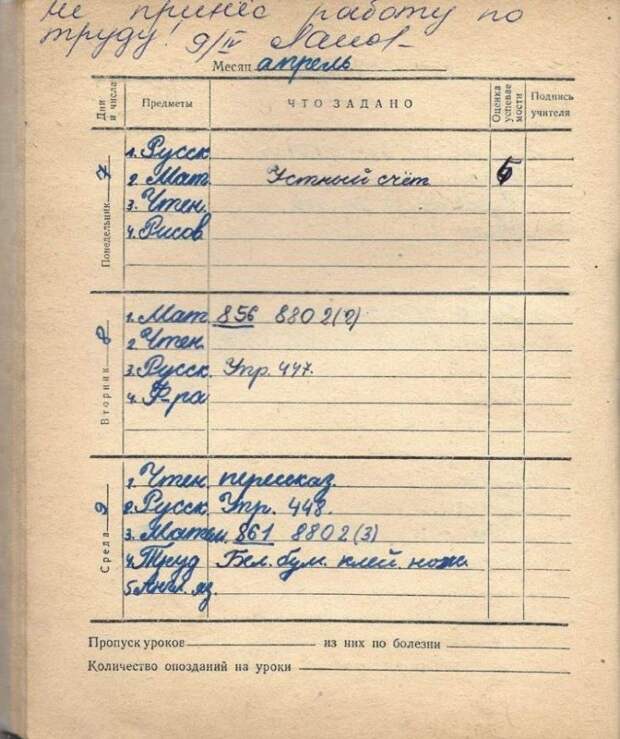 не принёс работу по
труду! 9/IV
Месяц апрель
Дни и числа Предметы ЧТО ЗАДАНО Оценка успевае мости Подпись учителя
Понедельник 7
1. Русск
2. Мат. Устный счёт 5
3. Чтен.
4. Рисов
Вторник 8
1. Мат. 856 880 2(2)
2. Чтен.
3. Русск. Упр. 447.
4. Ф-ра
Среда 9
1. Чтен. пересказ.
2. Русск. Упр. 448.
3. Матем. 861 880 2(3)
4. Труд Бел. бум. клей. нож.
5. Англ. яз.
Пропуск уроков из них по болезни
Количество опозданий на уроки